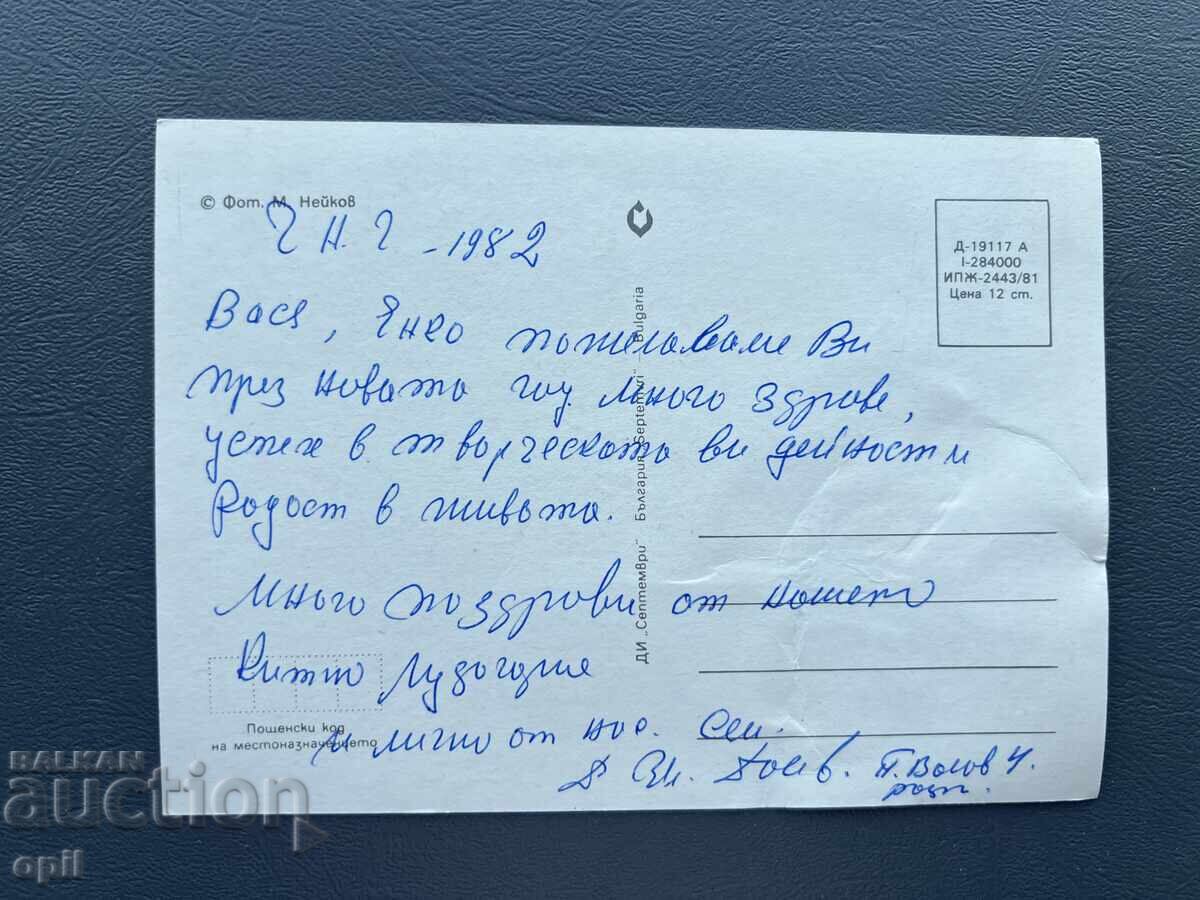 © Фот. М. Нейков
Ч Н. Г - 1982
Д-19117 А
I-284000
ИПЖ-2443/81
Цена 12 ст.
Вася, Янко пожелавам Ви
през новата год. много здраве,
успех в творческата ви дейност и
радост в живота.
Много поздрави от нашето
китно Лудогорие
и лично от нас. Сем.
П. Волов 4.
ДИ „Септември" България „Septemvri" Bulgaria
Пощенски код
на местоназначението
BALKAN
auction
opil